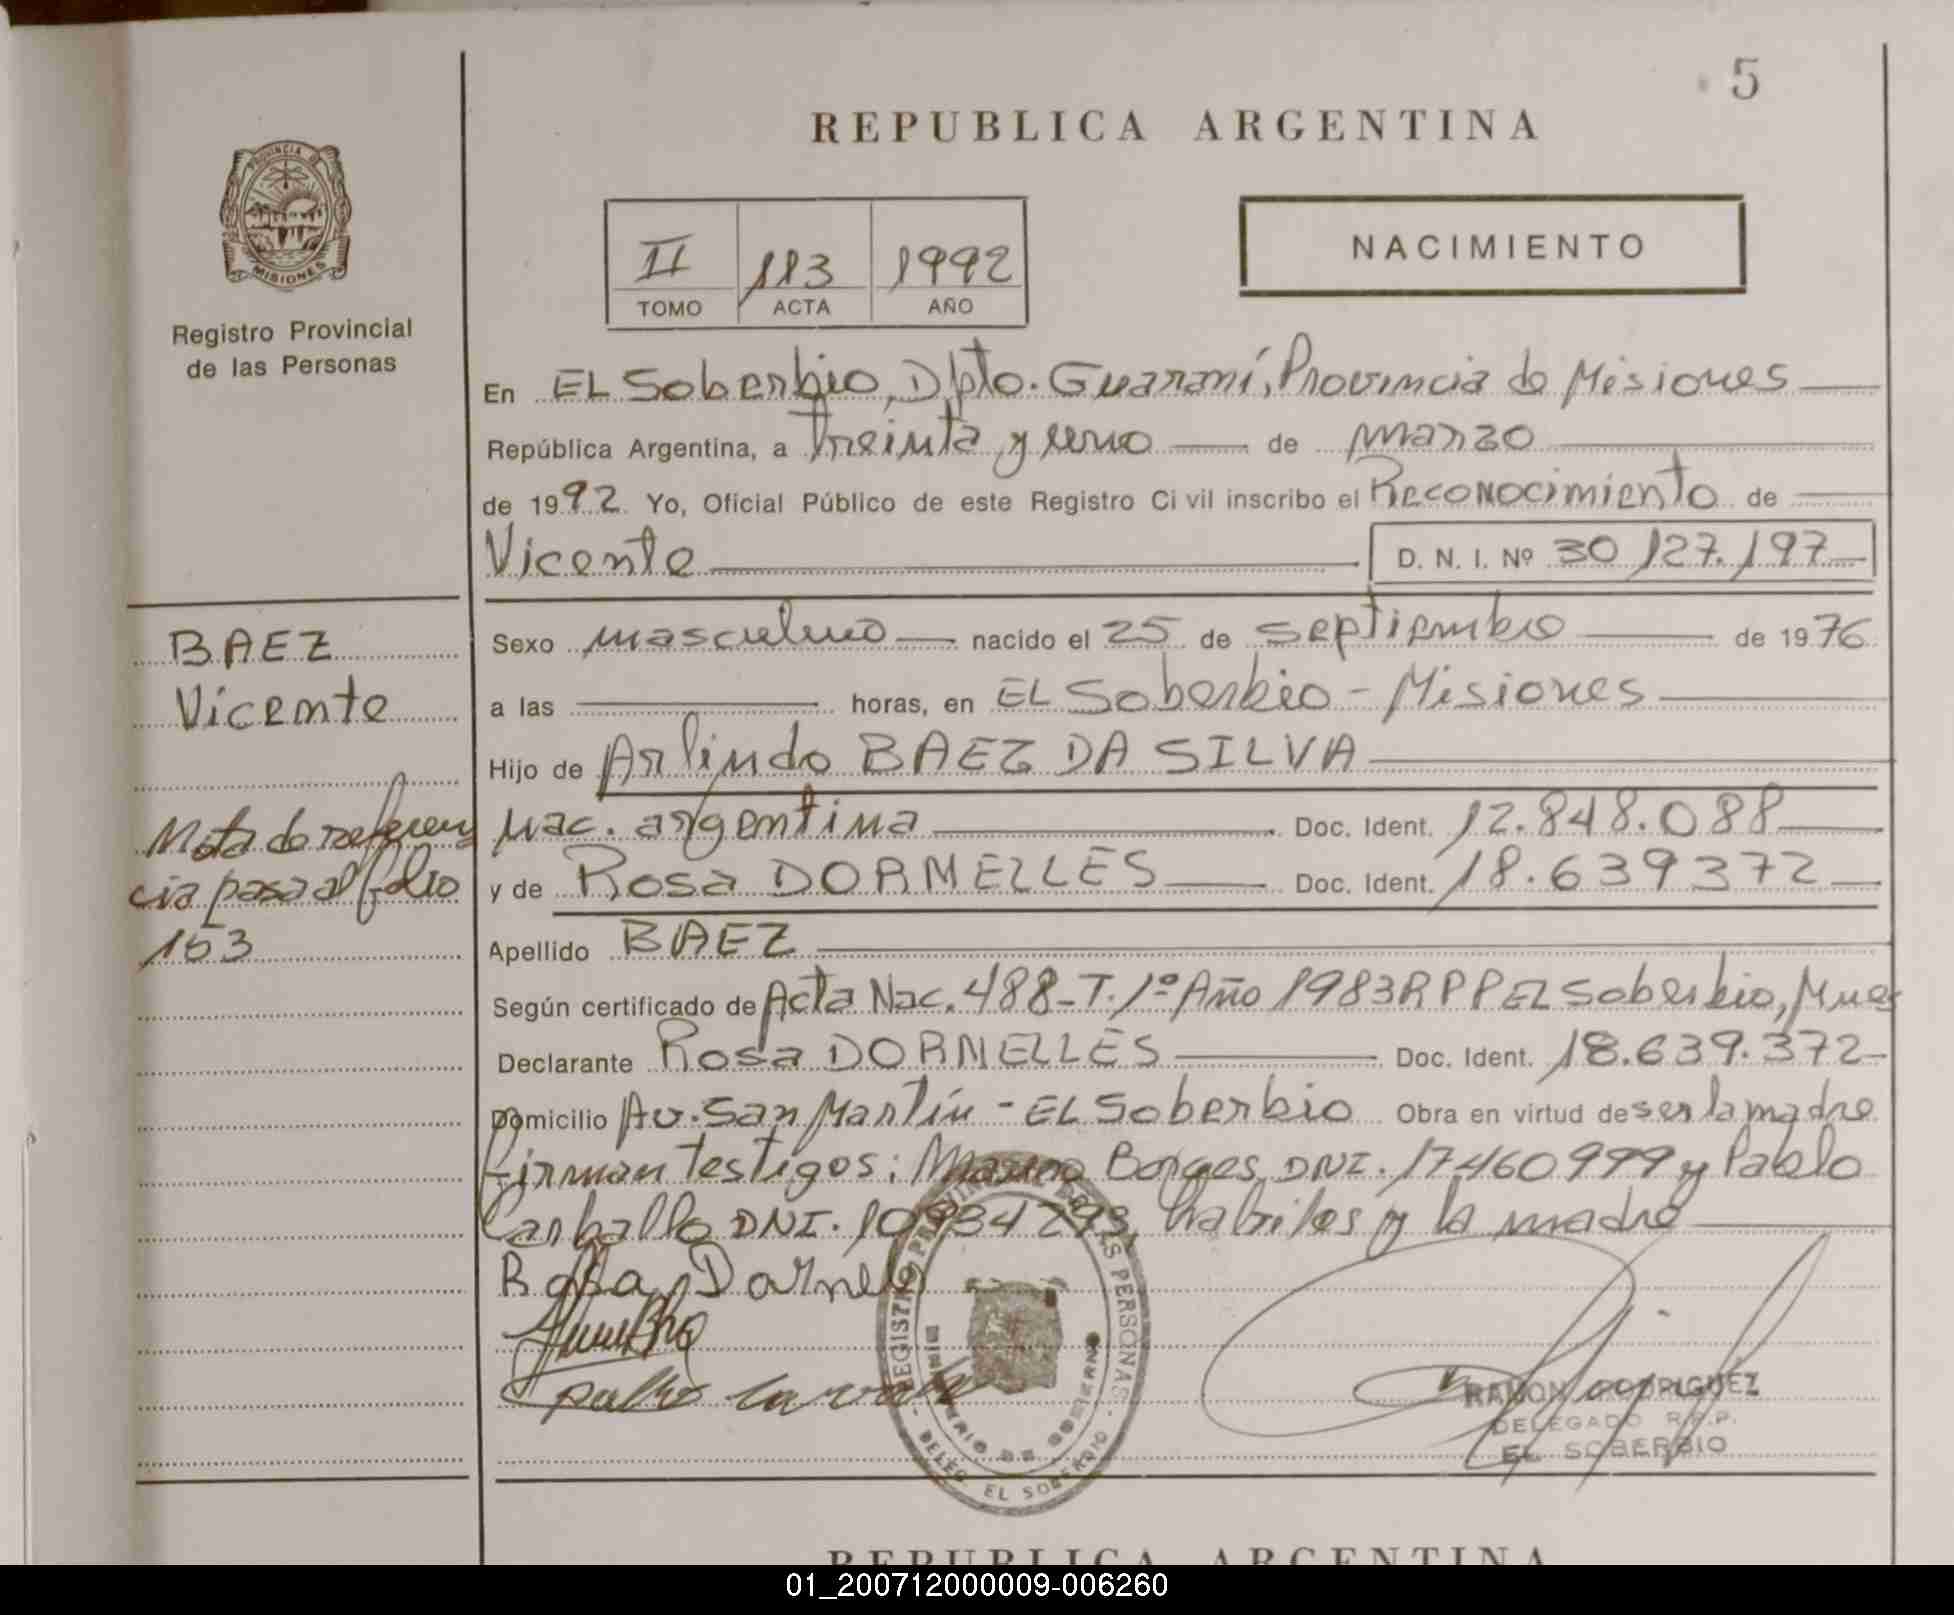 5
REPUBLICA ARGENTINA
PROVINCIA DE
MISIONES
Registro Provincial
de las Personas
II 113 1992
TOMO ACTA AÑO
NACIMIENTO
En EL Soberbio, Dpto. Guaraní, Provincia de Misiones
República Argentina, a treinta y uno de marzo
de 1992 Yo, Oficial Público de este Registro Civil inscribo el Reconocimiento de
Vicente D. N. I. Nº 30.127.197
BAEZ
Vicente
Nota de referen
cia pasa al folio
153
Sexo masculino nacido el 25 de septiembre de 1976
a las horas, en EL Soberbio - Misiones
Hijo de Arlindo BAEZ DA SILVA
nac. argentina Doc. Ident. 12.848.088
y de Rosa DORNELLES Doc. Ident. 18.639372
Apellido BAEZ
Según certificado de Acta Nac. 488-T. 1º Año 1983 RPP EL Soberbio, Mnes
Declarante Rosa DORNELLES Doc. Ident. 18.639.372
Domicilio Av. San Martín - EL Soberbio Obra en virtud de ser la madre
firman testigos: Borges DNI. 17460999 y Pablo
Carballo DNI. 10934293, habiles y la madre
Rosa Dornele
REGISTRO PROVINCIAL DE LAS PERSONAS
MINISTERIO DE GOBIERNO
DELEG. EL SOBERBIO
RAMON RODRIGUEZ
DELEGADO R.P.P.
EL SOBERBIO
REPUBLICA ARGENTINA
01_200712000009-006260